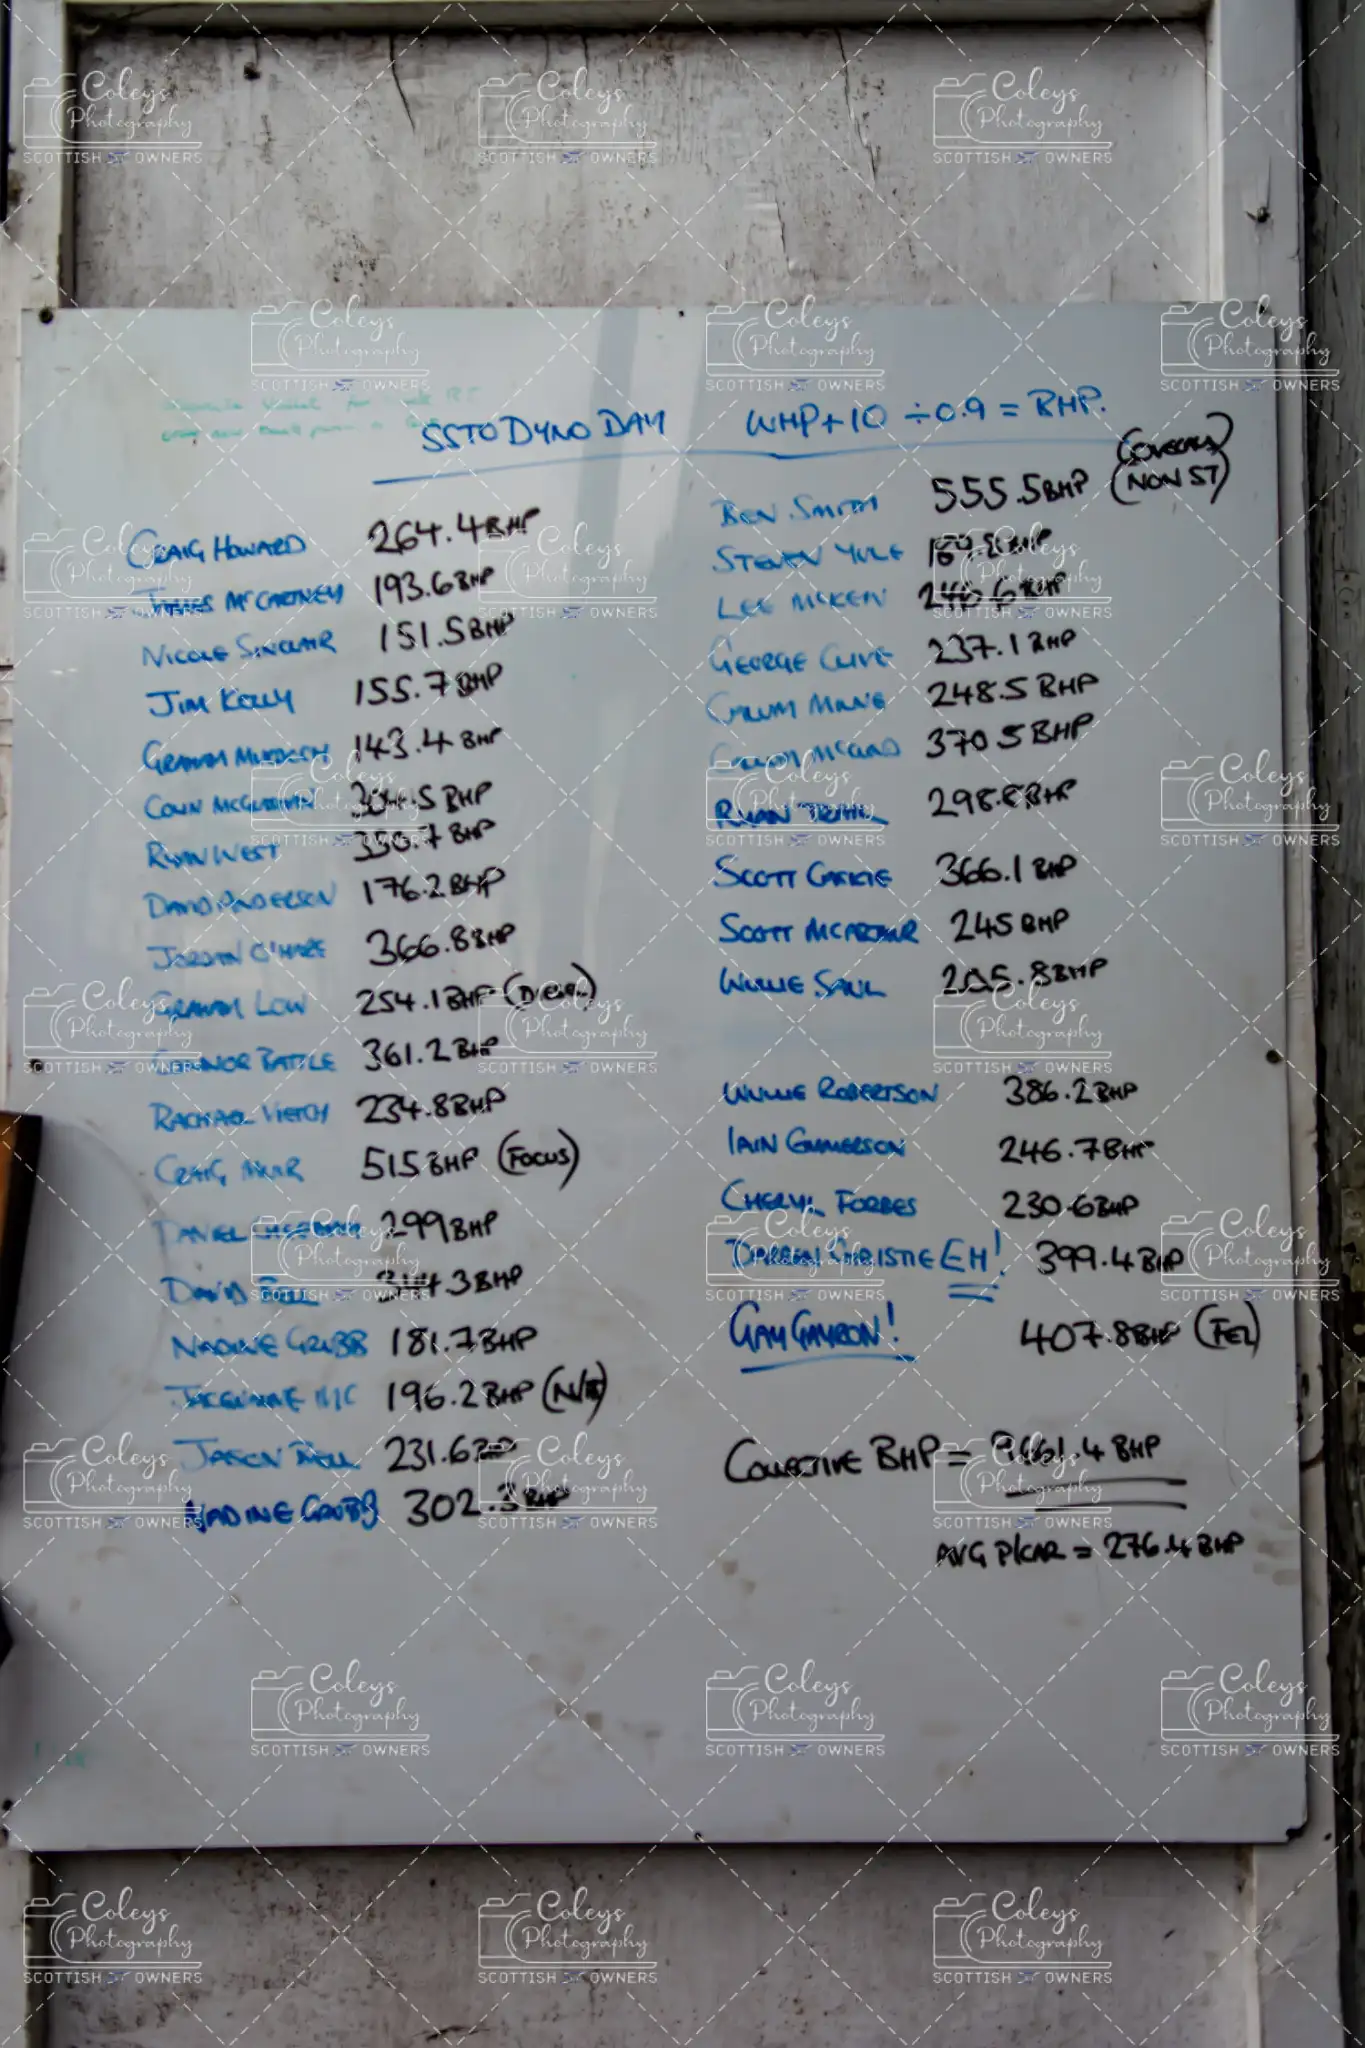 SSTO DYNO DAY WHP+10 ÷0.9 = BHP.
CRAIG HOWARD 264.4BHP
JAMES McCARTNEY 193.6BHP
NICOLE SINCLAIR 151.5BHP
JIM KELLY 155.7BHP
GRAHAM MURDOCH 143.4BHP
COLIN 5BHP
RYAN WEST 350.7BHP
DAVID ANDERSON 176.2BHP
JORDAN O'HARE 366.8BHP
GRAHAM LOW 254.1BHP (DIESEL)
CONNOR BATTLE 361.2BHP
RACHAEL VEITCH 234.8BHP
CRAIG MUIR 515BHP (FOCUS)
DANIEL 299BHP
DAVID BELL 344.3BHP
NADINE GRUBB 181.7BHP
JACQUELINE MC 196.2BHP (N/B)
JASON BELL 231.6BHP
NADINE GRUBB 302.3BHP
BEN SMITH 555.5BHP (OVERALL) (NON ST)
STEVEN YULE BHP
LEE McKEN 246.6BHP
GEORGE CLIVE 237.1BHP
CALLUM MILNE 248.5BHP
CALLUM 370.5BHP
RYAN 298.8BHP
SCOTT 366.1BHP
SCOTT McARTHUR 245BHP
WULLIE SAUL 205.8BHP
WULLIE ROBERTSON 386.2BHP
IAIN EMMERSON 246.7BHP
CHERYL FORBES 230.6BHP
DARREN CHRISTIE EH! 399.4BHP
GAY GAYRON! 407.8BHP (FE2)
COLLECTIVE BHP = 9661.4BHP
AVG P/CAR = 276.4BHP
Coleys
Photography
SCOTTISH OWNERS